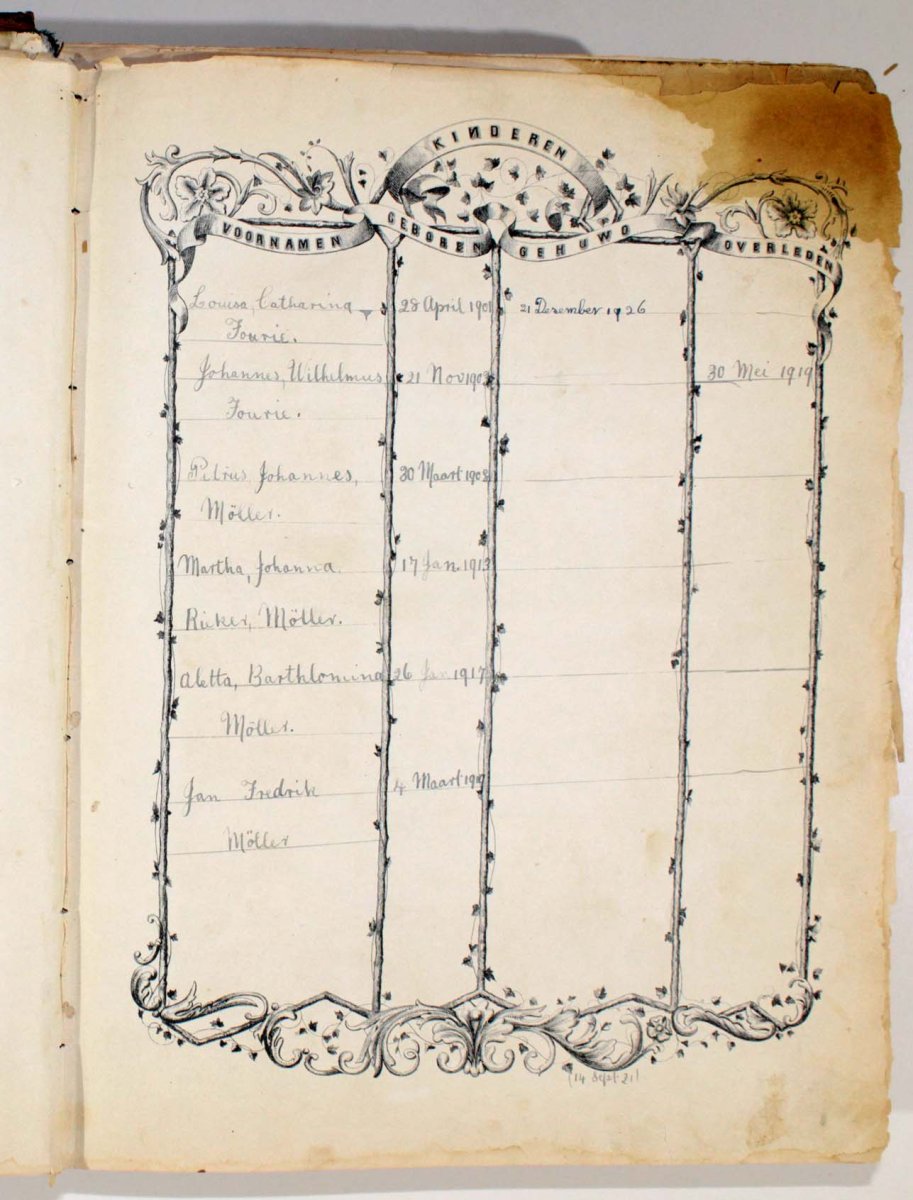 KINDEREN
VOORNAMEN GEBOREN GEHUWD OVERLEDEN
Louisa, Catharina 28 April 1901 21 Desember 1926
Fourie.
Johannes, Wilhelmus 21 Nov 30 Mei 1919
Fourie.
Petrus Johannes, 30 Maart
Möller.
Martha, Johanna. 17 Jan. 1913
Möller.
Aletta, Barthlomina 26 Jan 1917
Möller.
Jan Fredrik 4 Maart 1919
Möller
(14 Sept 21)